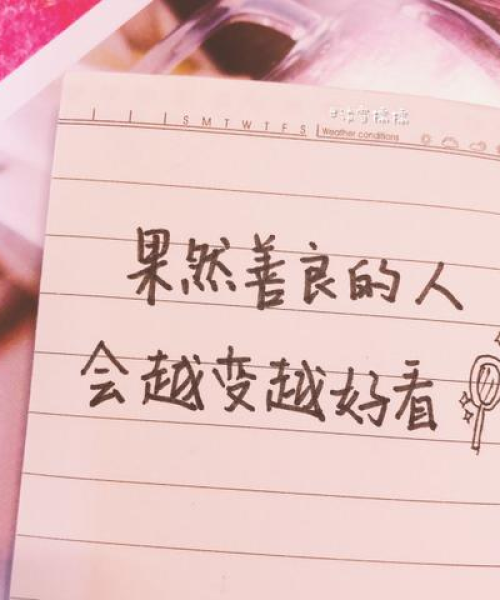 S M T W T F S Weather conditions
果然善良的人
会越变越好看